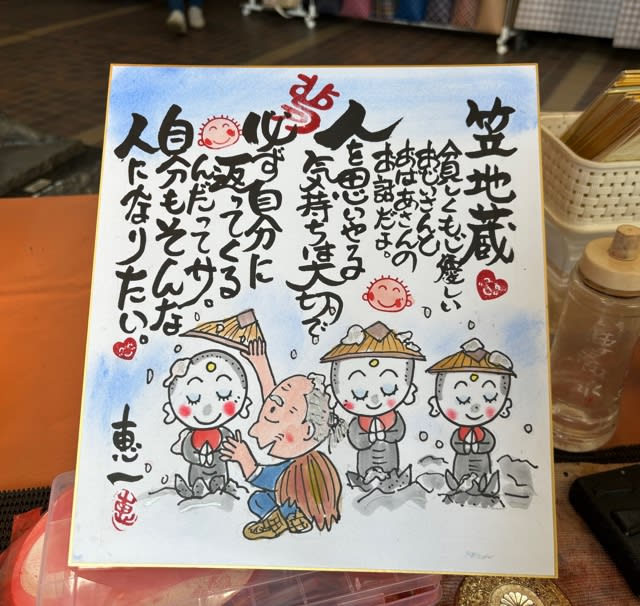 笠地蔵
貧しくも心優しい
おじいさんと
おばあさんの
お話だよ。
人を思いやる
気持ちは大切で
必ず自分に
返ってくる
んだってサ。
自分もそんな
人になりたい。
恵一
恵